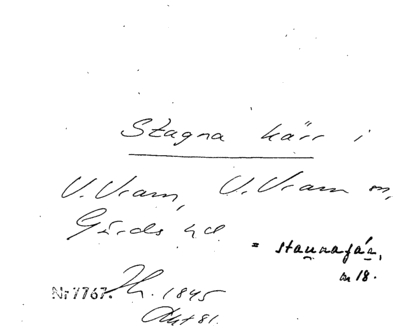 Stagna kärr i
V. Vram, V. Vram sn,
Gärds hd.
= stannafár,
m 18.
Nr 7767. Jh. 1845
Akt 81.